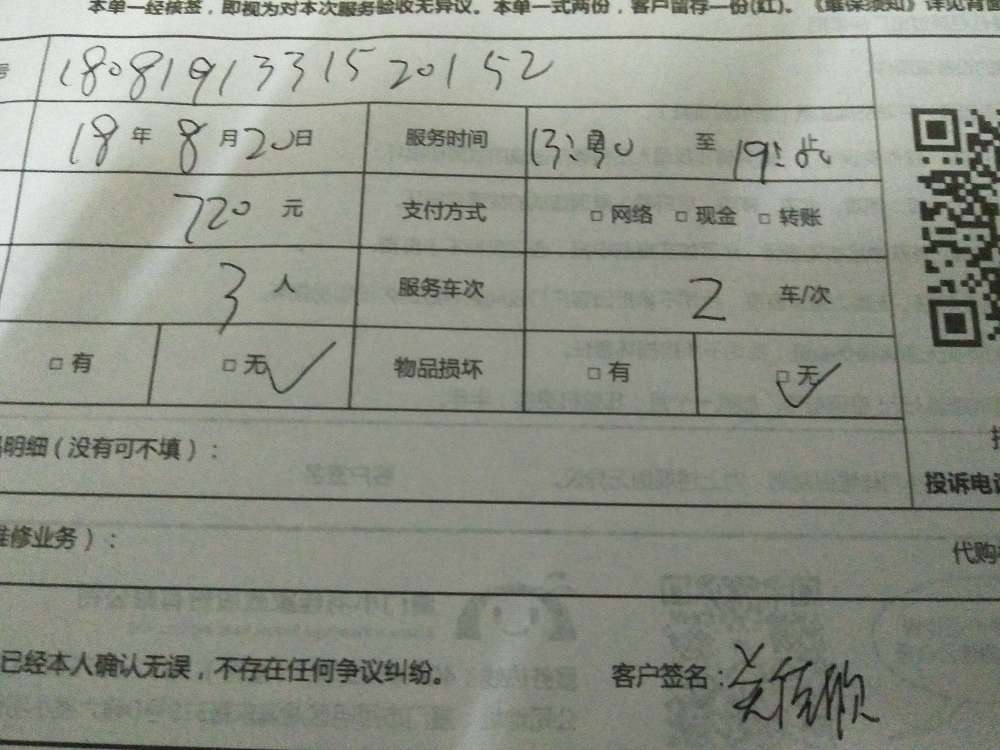 本单一经核签，即视为对本次服务验收无异议。本单一式两份，客户留存一份(红)。《维保须知》详见背面
号 180819133152O152
18 年 8 月 20 日 服务时间 13:30 至 19:
720 元 支付方式 □ 网络 □ 现金 □ 转账
3 人 服务车次 2 车/次
□ 有 □ 无 ✓ 物品损坏 □ 有 □ 无 ✓
明细（没有可不填）：
投诉电话
维修业务）：
代购
已经本人确认无误，不存在任何争议纠纷。 客户签名：